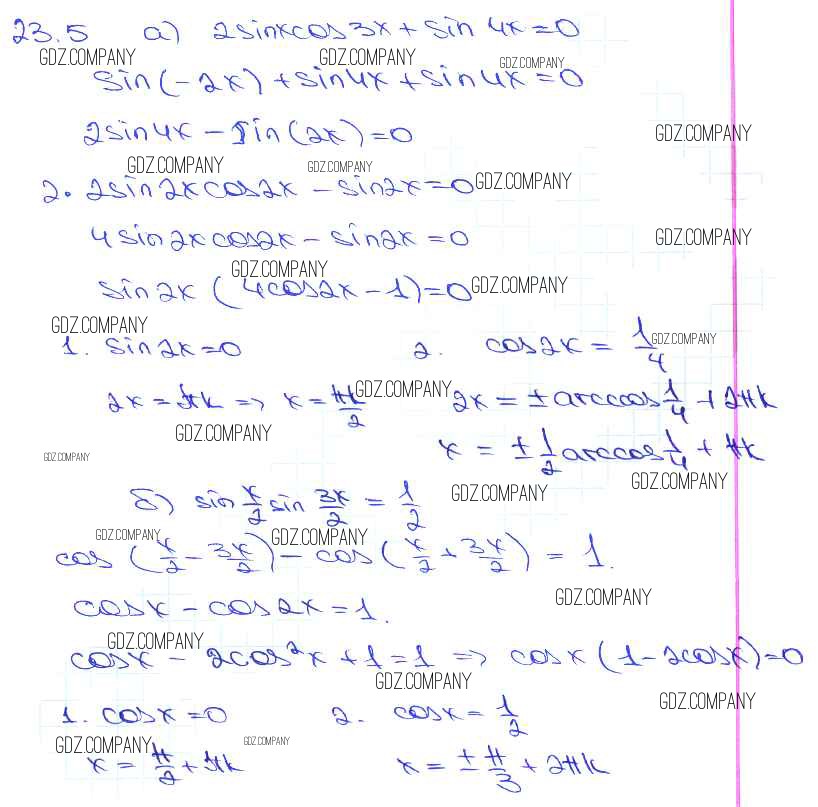 23.5 а) 2sinxcos3x + sin 4x = 0
GDZ.COMPANY GDZ.COMPANY GDZ.COMPANY
sin(-2x) + sin4x + sin4x = 0
2sin4x - sin(2x) = 0 GDZ.COMPANY
GDZ.COMPANY GDZ.COMPANY
2. 2sin2xcos2x - sin2x = 0 GDZ.COMPANY
4sin2xcos2x - sin2x = 0 GDZ.COMPANY
GDZ.COMPANY
sin2x (4cos2x - 1) = 0 GDZ.COMPANY
GDZ.COMPANY
1. sin2x = 0 2. cos2x = 1/4 GDZ.COMPANY
2x = πk => x = πk/2 GDZ.COMPANY 2x = ± arccos 1/4 + 2πk
GDZ.COMPANY
x = ± 1/2 arccos 1/4 + πk
GDZ.COMPANY GDZ.COMPANY
б) sin x/2 sin 3x/2 = 1/2 GDZ.COMPANY
GDZ.COMPANY GDZ.COMPANY
cos (x/2 - 3x/2) - cos (x/2 + 3x/2) = 1.
GDZ.COMPANY
cosx - cos2x = 1.
GDZ.COMPANY
cosx - 2cos²x + 1 = 1 => cosx (1 - 2cosx) = 0
GDZ.COMPANY
1. cosx = 0 2. cosx = 1/2 GDZ.COMPANY
GDZ.COMPANY GDZ.COMPANY
x = π/2 + πk x = ± π/3 + 2πk